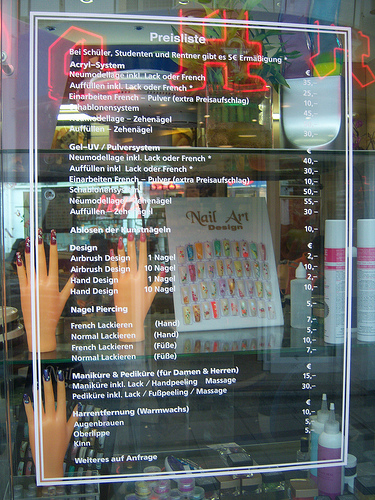 Preisliste
Bei Schüler, Studenten und Rentner gibt es 5€ Ermäßigung *
Acryl-System
Neumodellage inkl. Lack oder French 35,-
Auffüllen inkl. Lack oder French * 25,-
Einarbeiten French - Pulver (extra Preisaufschlag) 10,-
Schablonensystem
Neumodellage - Zehenägel
Auffüllen - Zehenägel 30,-
Gel-UV / Pulversystem €
Neumodellage inkl. Lack oder French * 40,-
Auffüllen inkl. Lack oder French * 30,-
Einarbeiten French - Pulver (extra Preisaufschlag) 10,-
Schablonensystem 50,-
Neumodellage - Zehenägel 55,-
Auffüllen - Zehenägel 30,-
Ablösen der Kunstnägel 10,-
Nail Art
Design
Design €
Airbrush Design 1 Nagel 2,-
Airbrush Design 10 Nagel 10,-
Hand Design 1 Nagel 2,-
Hand Design 10 Nagel 10,-
Nagel Piercing 5,-
French Lackieren (Hand) 7,-
Normal Lackieren (Hand) 5,-
French Lackieren (Füße) 10,-
Normal Lackieren (Füße) 7,-
Maniküre & Pediküre (für Damen & Herren) €
Maniküre inkl. Lack / Handpeeling Massage 15,-
Pediküre inkl. Lack / Fußpeeling / Massage 30,-
Harrentfernung (Warmwachs) €
Augenbrauen 10,-
Oberlippe 5,-
Kinn 5,-
Weiteres auf Anfrage